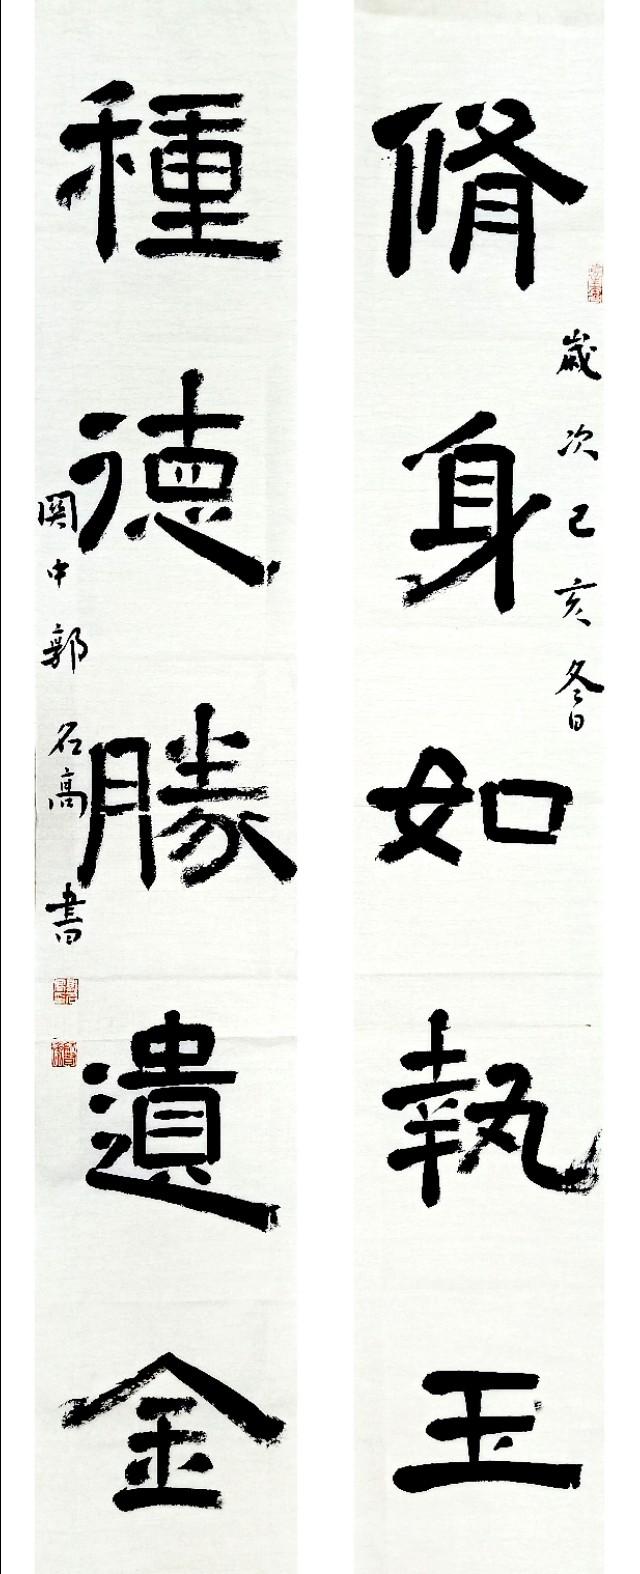 脩身如執玉
歲次己亥冬日
種德勝遺金
関中郭名高書